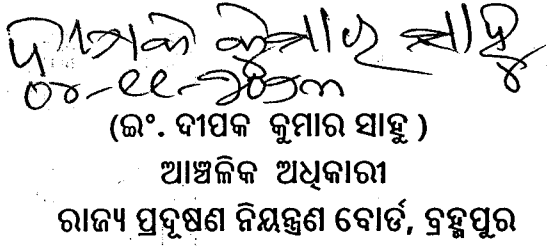 ଦୀପକ କୁମାର ସାହୁ
୦୪-୧୧-୨୦୨୩
(ଇଂ. ଦୀପକ କୁମାର ସାହୁ )
ଆଞ୍ଚଳିକ ଅଧିକାରୀ
ରାଜ୍ୟ ପ୍ରଦୂଷଣ ନିୟନ୍ତ୍ରଣ ବୋର୍ଡ, ବ୍ରହ୍ମପୁର